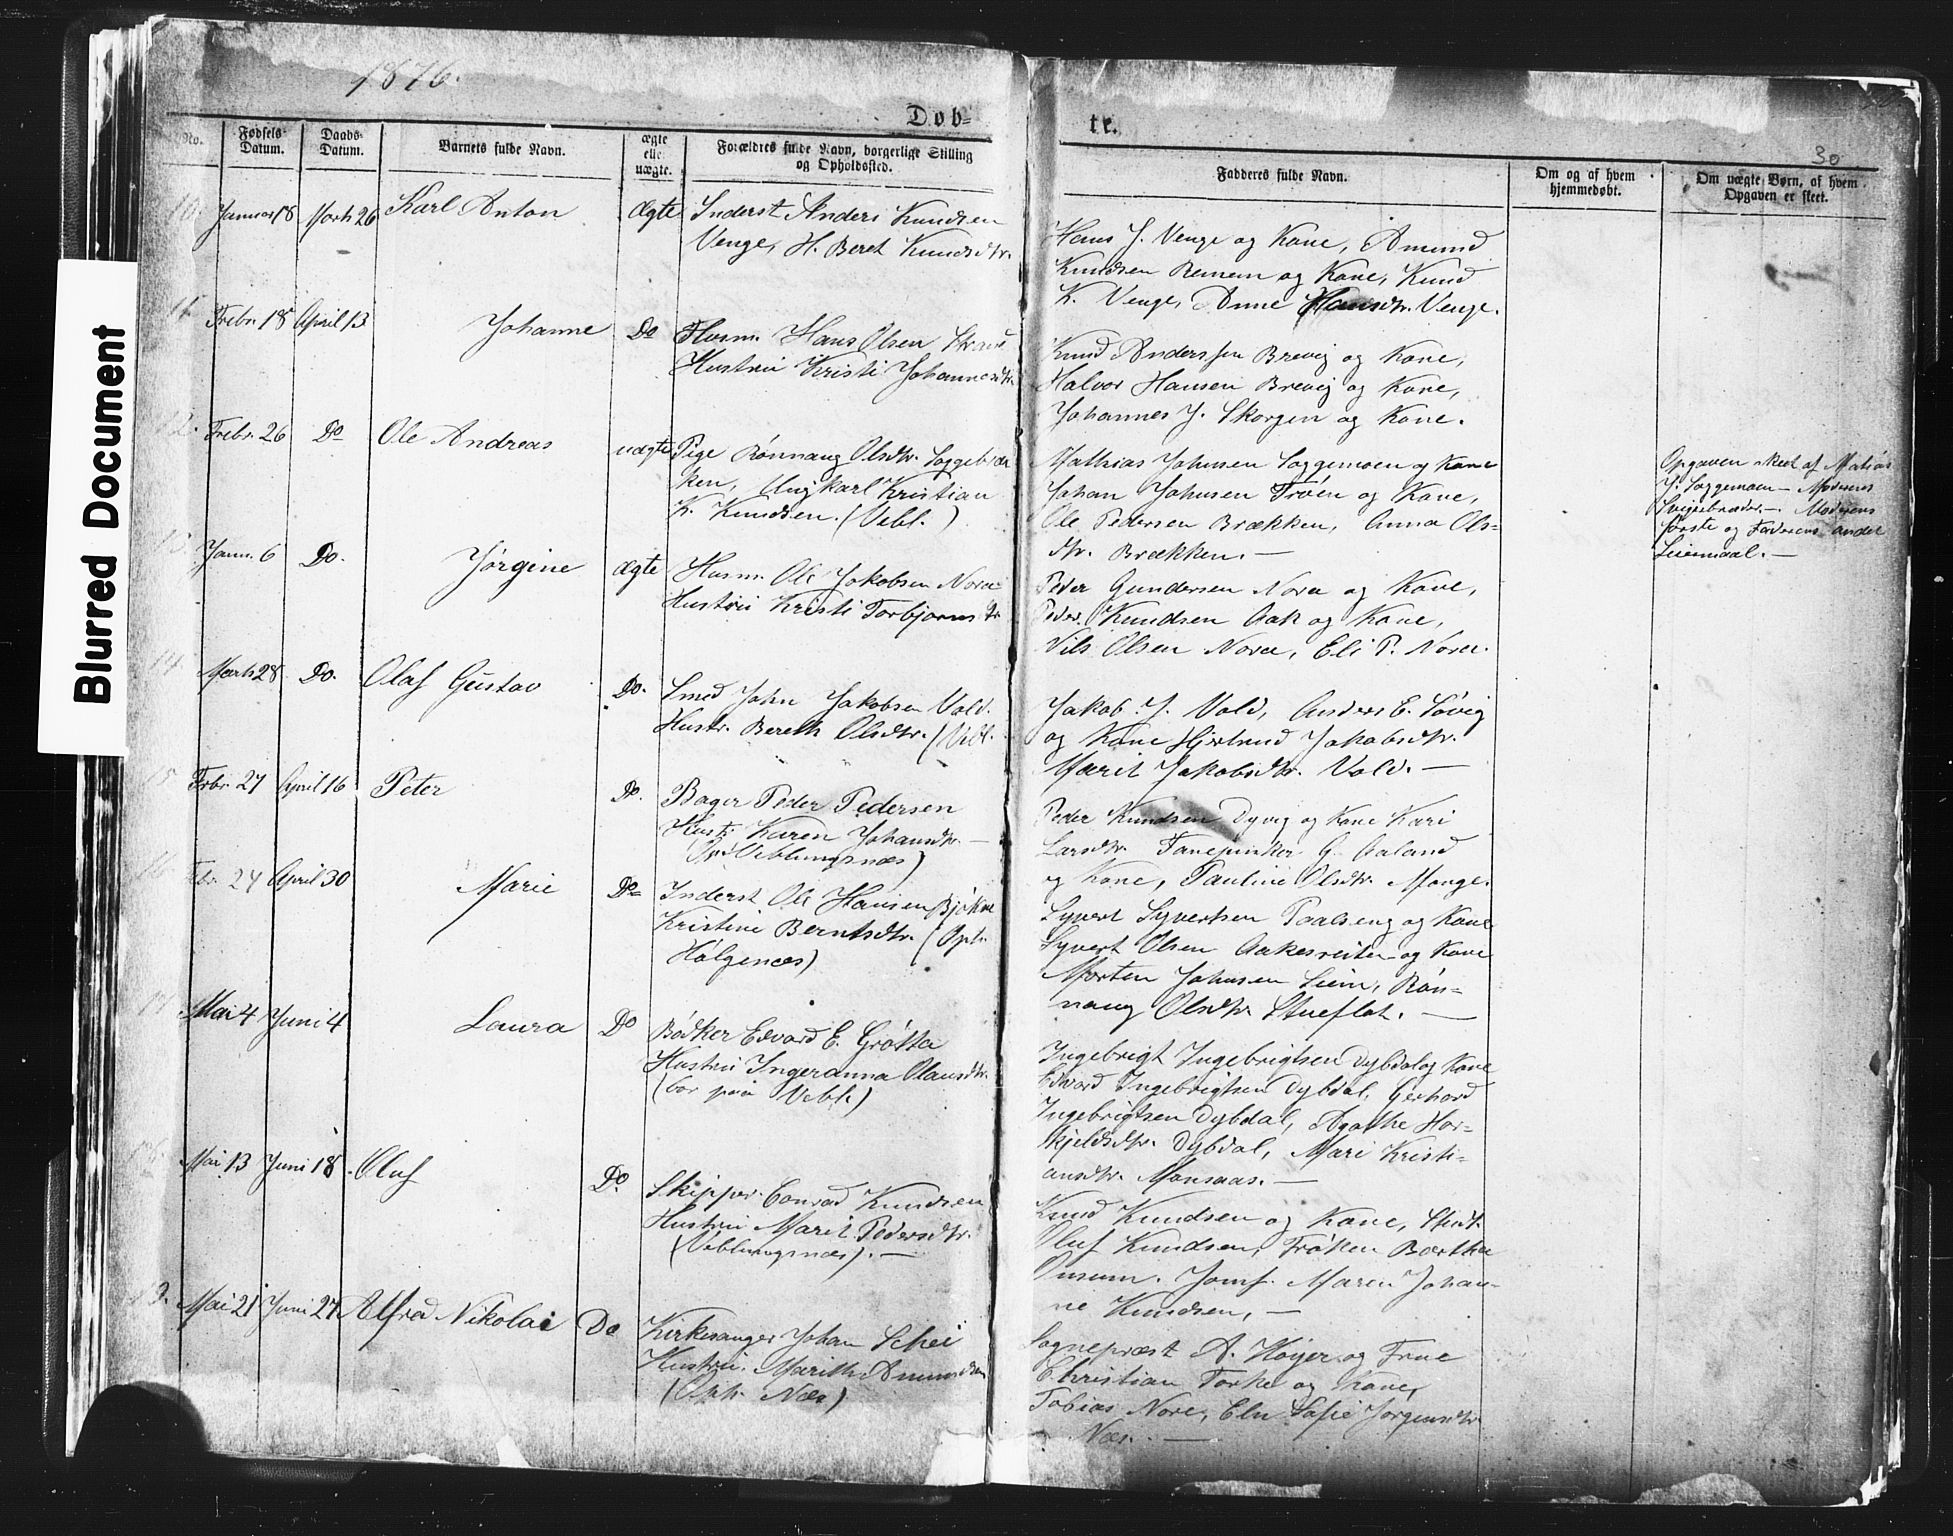 1876.
Døb=
No.
Fødsels-
Datum.
Daabs-
Datum.
Barnets fulde Navn.
ægte
elle
uægte.
Forældres fulde Navn, borgerlige Stilling
og Opholdssted.
10. Januar 18 Marts 26 Karl Anton Ægte Inderst Anders Knudsen
Venge, H. Beret Knudsdtr.
11. Febr. 18 April 13 Johanne Do Husm. Hans Olsen
Hustru Kristi Johannesdtr.
12. Febr. 26 Do Ole Andreas uægte Pige Rønnaug Olsdtr. Soggebræk
ken, Ungkarl Kristian
K. Knudsen. (Vebl.)
13 Janr. 6 Do. Jørgine Ægte Husm. Ole Jakobsen Nora
Hustru Kristi Torbjørnsdtr
14 Marts 28 Do. Olaf Gustav Do. Smed John Jakobsen Vold.
Hustr. Bereth Olsdtr. (Vebl.
15 Febr. 27 April 16 Peter Do. Bager Peder Pedersen
Hust. Karen Johansdtr. —
(Veblungsnæs)
16 Febr. 24 April 30 Marie Do Inderst Ole Hansen
Kristine Berntsdtr. (Oph.
Hølgenæs)
17 Mai 4 Juni 4 Laura Do Bødker Edvard E. Grøtta
Hustru Ingeranna Olausdtr.
(bor paa Vebl.)
18. Mai 13 Juni 18. Oluf Do. Skipper Conrad Knudsen
Hustru Marit Pedersdtr.
(Veblungsnæs). —
19. Mai 21 Juni 27 Alfred Nikolai Do Kirkesanger Johan Schei
Hustru. Marith Amundsen
(Oph. Næs)
te.
30
Fadderes fulde Navn.
Om og af hvem
hjemmedøbt.
Om uægte Børn, af hvem
Opgaven er skeet.
Hans J. Venge og Kone, Amund
Knudsen Remem og Kone, Knud
K. Venge, Anne Hansdtr. Venge.
Knud Anderssen Brevig og Kone,
Halvor Hansen Brevig og Kone,
Johannes J. Skorgen og Kone.
Mathias Johnsen Soggemoen og Kone
Johan Johnsen Trøen og Kone,
Ole Pedersen Brækken, Anna Ols=
dtr. Brækken. —
Opgaven skeet af Matias
J. Soggemoen — Moderens
Svigerbroder. — Moderens
første og Faderens andet
Leiermaal. —
Peder Gundersen Nora og Kone,
Peder Knudsen Aak og Kone,
Nils Olsen Nora, Eli P. Nora.
Jakob J. Vold, Anders E. Søvig
og Kone Hjertrud Jakobsdtr.
Marit Jakobsdtr. Vold. —
Peder Knudsen Dyvig og Kone Kari
Larsdtr. G. Aaland
og Kone, Pauline Olsdtr. Monge.
Syvert Syvertsen Paalseng og Kone
Syvert Olsen Aakesreiten og Kone
Morten Johnsen Leim, Røn=
naug Olsdtr. Stueflot. —
Ingebrigt Ingebrigtsen Dybdal og Kone
Edvard Ingebrigtsen Dybdal, Gerhard
Ingebrigtsen Dybdal, Agathe Har=
skjeldsdtr. Dybdal, Mari Kristi=
ansdtr. Monsaas. —
Knud Knudsen og Kone, Stud.
Oluf Knudsen, Frøken Bærtha
Onsum. Jomf. Maren Johan=
ne Knudsen, —
Sognepræst A. Høyer og Frue
Christian Torke og Kone,
Tobias Nore, Eln Sofie Jørgensdtr
Næs. —
Blurred Document